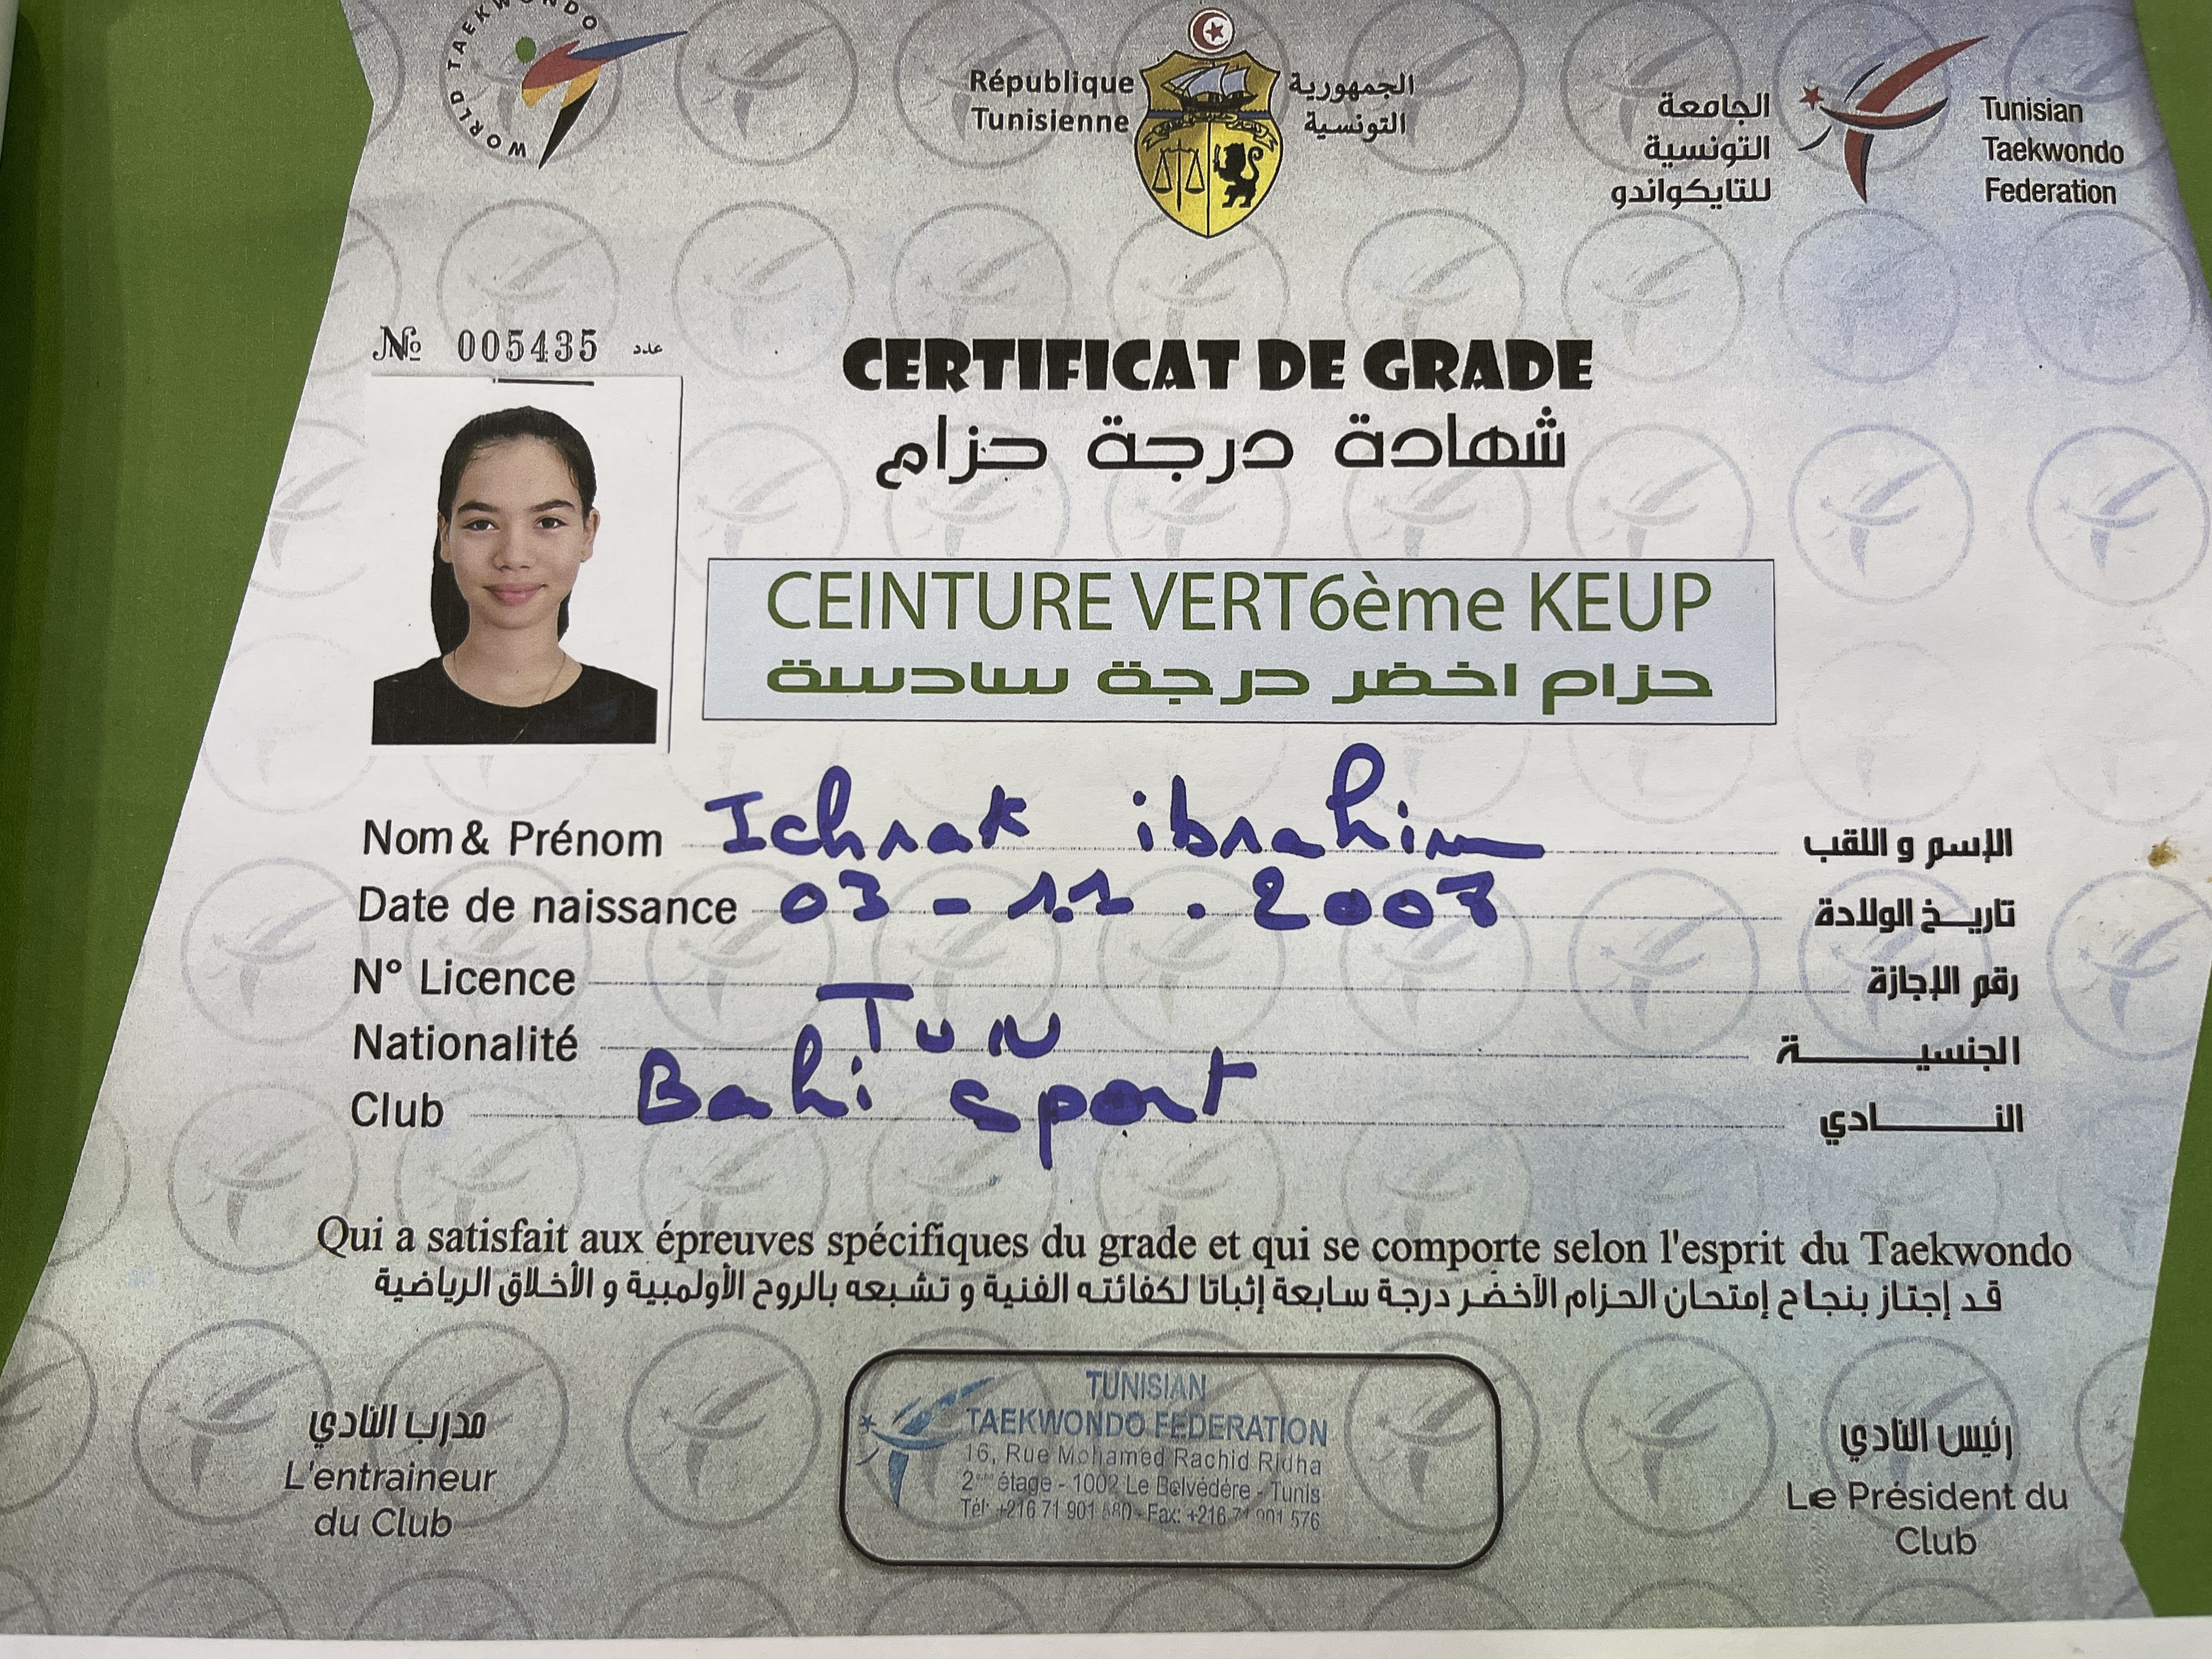 WORLD TAEKWONDO
République
Tunisienne
الجمهورية
التونسية
الجامعة
التونسية
للتايكواندو
Tunisian
Taekwondo
Federation
№ 005435 عدد
CERTIFICAT DE GRADE
شهادة درجة حزام
CEINTURE VERT6ème KEUP
حزام اخضر درجة سادسة
Nom & Prénom Ichrak ibrahim الإسم و اللقب
Date de naissance 03 - 11 . 2007 تاريخ الولادة
N° Licence رقم الإجازة
Nationalité TUN الجنسيـــــة
Club Bahi sport النـــــادي
Qui a satisfait aux épreuves spécifiques du grade et qui se comporte selon l'esprit du Taekwondo
قد إجتاز بنجاح إمتحان الحزام الأخضر درجة سابعة إثباتا لكفائته الفنية و تشبعه بالروح الأولمبية و الأخلاق الرياضية
مدرب النادي
L'entraineur
du Club
TUNISIAN
TAEKWONDO FEDERATION
16, Rue Mohamed Rachid Ridha
2ème étage - 1002 Le Belvédére - Tunis
Tél: +216 71 901 - Fax: +216 71 901 576
رئيس النادي
Le Président du
Club